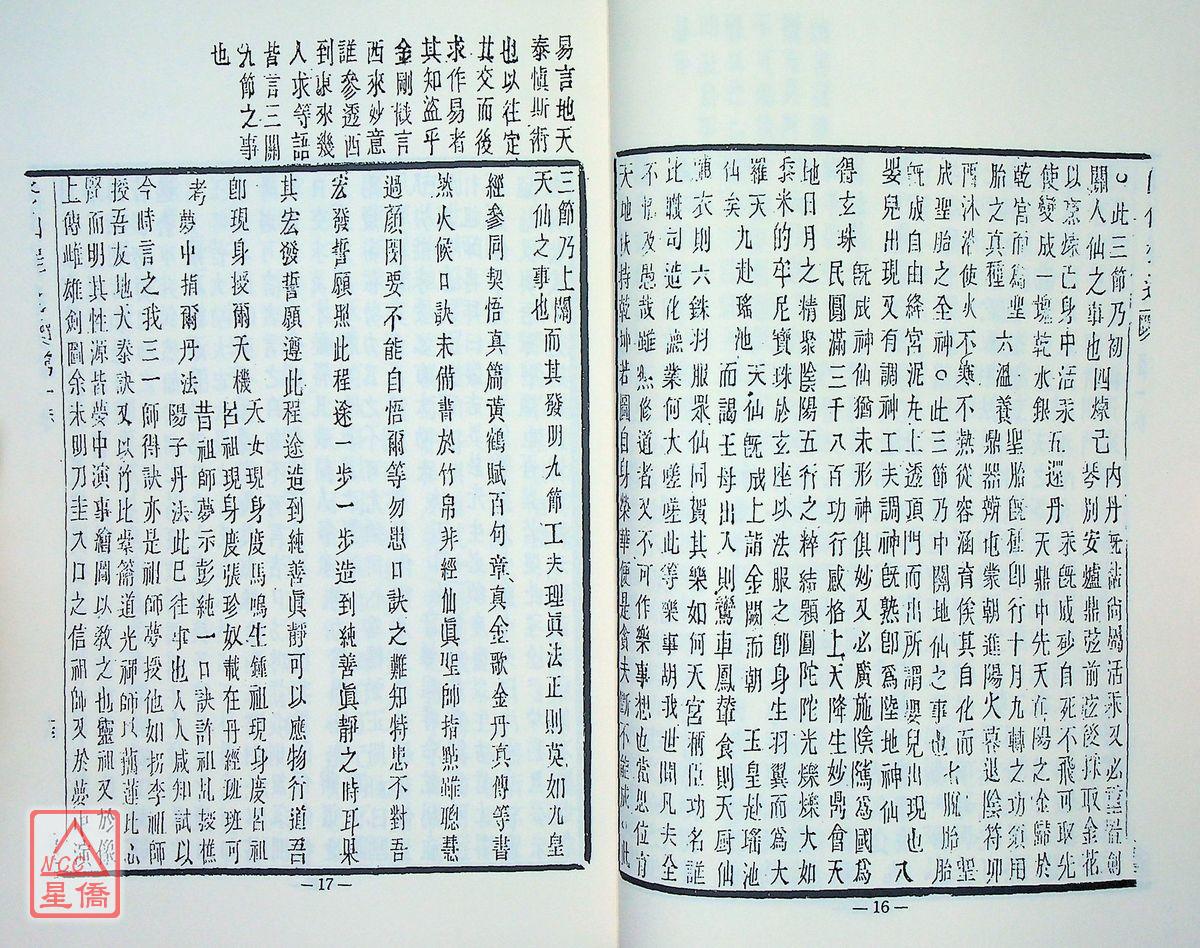 ○此三節乃初
關人仙之事也四煉己 內丹既結尚屬活汞又必重鑄劍
以烹煉己身中活汞五還丹 琴別安爐鼎弦前弦後採取金花
使變成一塊乾水銀五還丹 汞既成砂自死不飛可取先
乾宮而為聖六溫養 天鼎中先天在陽之金歸於
胎之真種 聖胎既種卽行十月九轉之功須用
酉沐浴使火不寒不熱從容涵育俟其自化而
成聖胎之全神○此三節乃中關地仙之事也七脫胎
既成自由絳宮泥九上透頂門而出所謂嬰兒出現也八
嬰兒出現又有調神工夫調神既熟卽為陸地神仙
得玄珠 既成神仙猶未形神俱妙又必廣施陰隲為國為
民圓滿三千八百功行感格上天降生妙鼎會天
地日月之精聚陰陽五行之粹結顆圓陀陀光爍爍大如
黍米的牟尼寶珠於玄座以法服之卽身生羽翼而為大
羅天
仙矣九赴瑤池 天仙既成上詣金闕而朝 玉皇赴瑤池
而謁王母出入則鸞車鳳輦食則天厨仙
衣則六銖羽服眾仙同賀其樂如何天宮稱臣功名誰
比職司造化 業何大嗟嗟此等樂事胡我世間凡夫全
不 愚哉雖然修道者又不可作樂事想也當思位育
天地扶持乾坤若圖自身榮華便是貪夫斷不能成○此
— 16 —
易言地天
泰慎斯術
也以往定
其交而後
求作易者
其知盜乎
金剛 言
西來妙意
誰參透西
到東來幾
人求等語
皆言三關
九節之事
也
三節乃上關
天仙之事也而其發明九節工夫理真法正則莫如九皇
經參同契悟真篇黃鶴賦百句章真金歌金丹真傳等書
然火候口訣未備書於竹帛非經仙真聖師指點雖聰慧
過顏閔要不能自悟爾等勿患口訣之難知特患不對吾
宏發誓願照此程途一步一步造到純善真靜之時耳果
其宏發誓願遵此程途造到純善真靜可以應物行道吾
卽現身授爾天機 天女現身度馬鳴生鍾祖現身度呂祖
呂祖現身度張珍奴載在丹經班班可
考夢中指爾丹法 昔祖師夢示彭純一口訣許祖 授樵
陽子丹法此已往事也人人咸知試以
今時言之我三一師得訣亦是祖師夢授他如拐李祖師
授吾友地大泰訣又以竹比 簫道光禪師以 蓮比
而明其性源皆夢中演事繪圖以教之也靈祖又於像
上傳雌雄劍圖余未明刀圭大口之信祖師又於夢中演
— 17 —
NCC
星僑